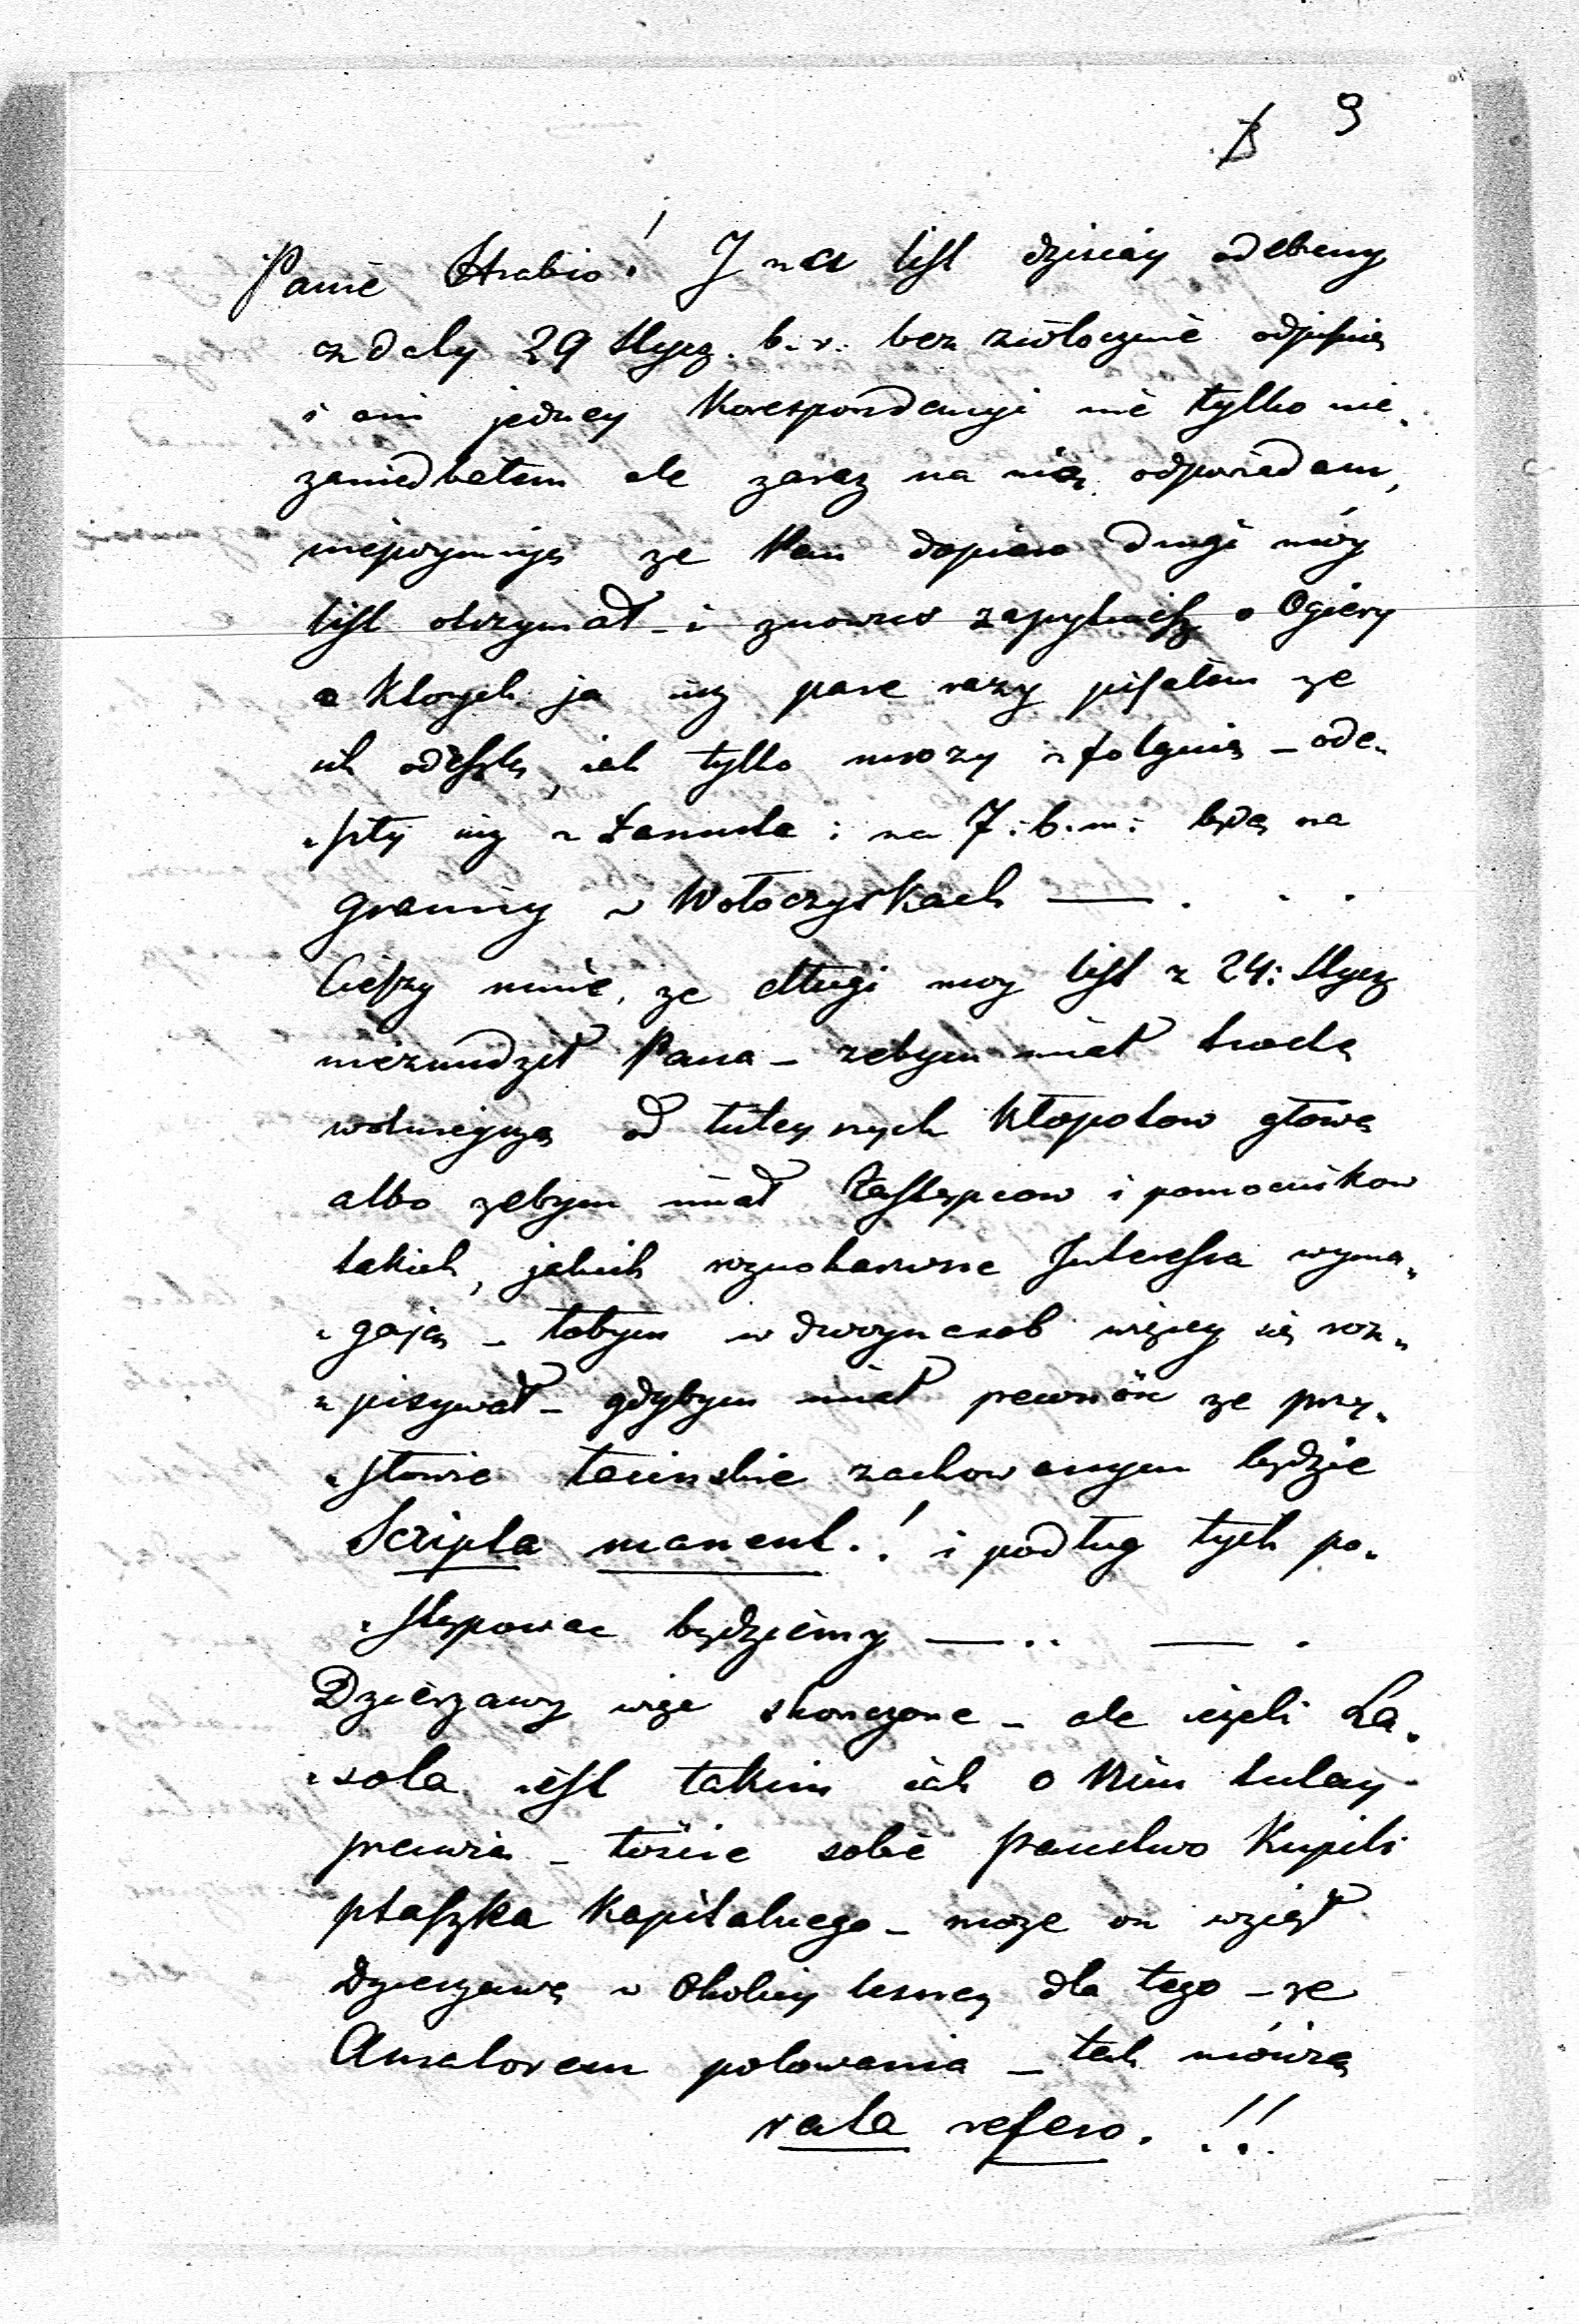 9
Panie Hrabio! I na list dzisiay odebrany
z daty 29 Stycz. b. r. bezzwłocznie odpisuię
i ani jedney Korespondencyi nie tylko nie„
zaniedbałem ale zaraz na nią odpowiadam,
niepoymuię ze Pan dopiero drugi móy
list otrzymał – i znowu zapytuiesz o Ogiery
o Ktorych ja iuz pare razy pisałem ze
ich odeszlę, iak tylko mrozy sfolguią – ode„
„szły iuz z Łancuta i na 7: b. m: będą na
granicy w Wołoczyskach —.
Cieszy mnie, ze długi moy list z 24: Stycz
nieznudził Pana – zebym miał trochę
wolnieyszą od tuteysych Kłopotow głowę
albo zebym miał Zastępcow i pomocnikow
takich, jakich roznostronne Interessa wyma„
„gają – tobym w dwoynasob więcey się roz„
„pisywał – gdybym miał pewność ze przy„
„słowie łacinskie zachowanym będzie
Scripta manent.! i podług tych po„
„stępowac będziemy — .. — .
Dzierzawy więc skonczone – ale iezeli La„
„sota iest takim iak o Nim tutay
prawią – toście sobie Panstwo Kupili
ptaszka Kapitalnego – moze on wziął
Dzierzawę w Okolicy lesney dla tego – ze
Amatorem polowania – tak mówią
rata refero. !!!